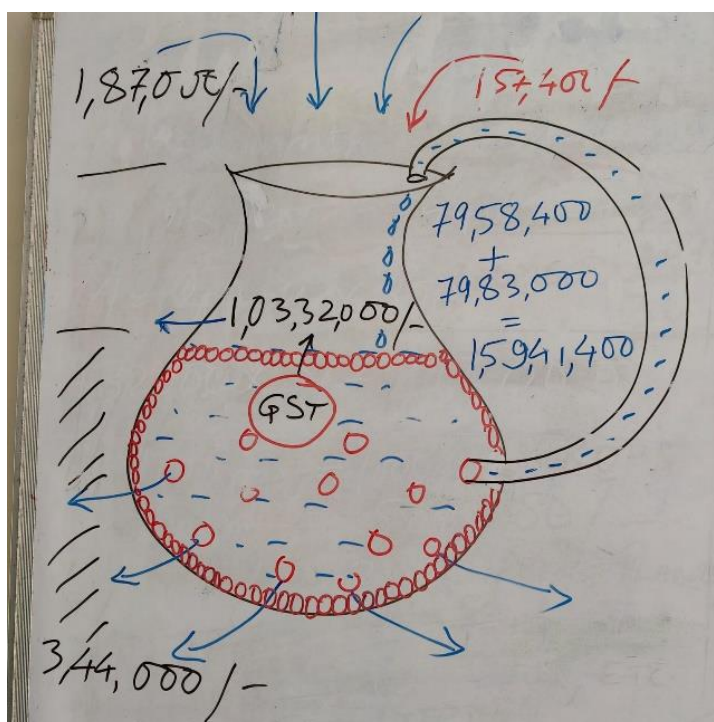 1,87,000/-
157,400/-
79,58,400
+
79,83,000
=
1,59,41,400
1,03,32,000/-
GST
3,44,000/-